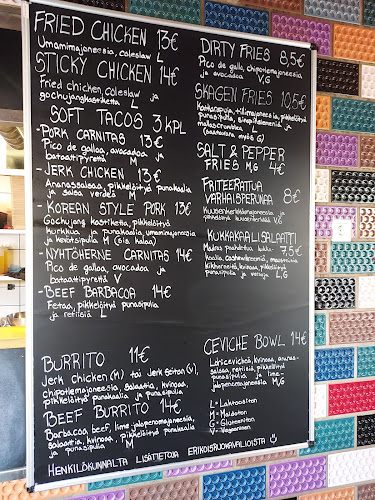 FRIED CHICKEN 13€
Umamimajoneesia, coleslaw L
STICKY CHICKEN 14€
Fried chicken, coleslaw ja
gochujangkastiketta L
SOFT TACOS 3 KPL
-PORK CARNITAS 13€
Pico de galloa, avocadoa ja
bataattipyrettä M
-JERK CHICKEN 13€
Ananassalsaa, pikkelöityä punakaalia
ja salsa verdeä M
-KOREAN STYLE PORK 13€
Gochujang kastiketta, pikkelöityä
kurkkua ja punakaalia, umamimajoneesia
ja kevätsipulia M (sis. kalaa)
-NYHTÖHERNE CARNITAS 14€
Pico de galloa, avocadoa ja
bataattipyrettä V
-BEEF BARBACOA 14€
Fetaa, pikkelöityä punasipulia
ja retiisiä L
BURRITO 11€
Jerk chicken (M) tai Jerk Seitan (V),
chipotlemajoneesia, salaattia, kvinoaa,
pikkelöityä punakaalia ja punasipulia
BEEF BURRITO 14€
Barbacoa beef, lime-jalapenomajoneesia,
salaattia, kvinoaa, pikkelöityä punakaalia
ja punasipulia M
DIRTY FRIES 8,5€
Pico de galloa, chipotlemajoneesia,
ja avocadoa V,G
SKAGEN FRIES 10,5€
punasipulia,
(saatavana myös G)
SALT & PEPPER
FRIES M,G 4€
FRITEERATTUA
VARHAISPERUNAA 8€
Kuusenkerkkämajoneesia
KUKKAKAALISALAATTI
7,5€
punasipulia ja L,G
CEVICHE BOWL 14€
kvinoaa, ananas-
salsaa, retiisiä, pikkelöityä
punasipulia ja lime-
jalapenomajoneesia M,G
L = Laktoositon
M = Maidoton
G = Gluteeniton
V = Vegaaninen
HENKILÖKUNNALTA LISÄTIETOJA ERIKOISRUOKAVALIOISTA